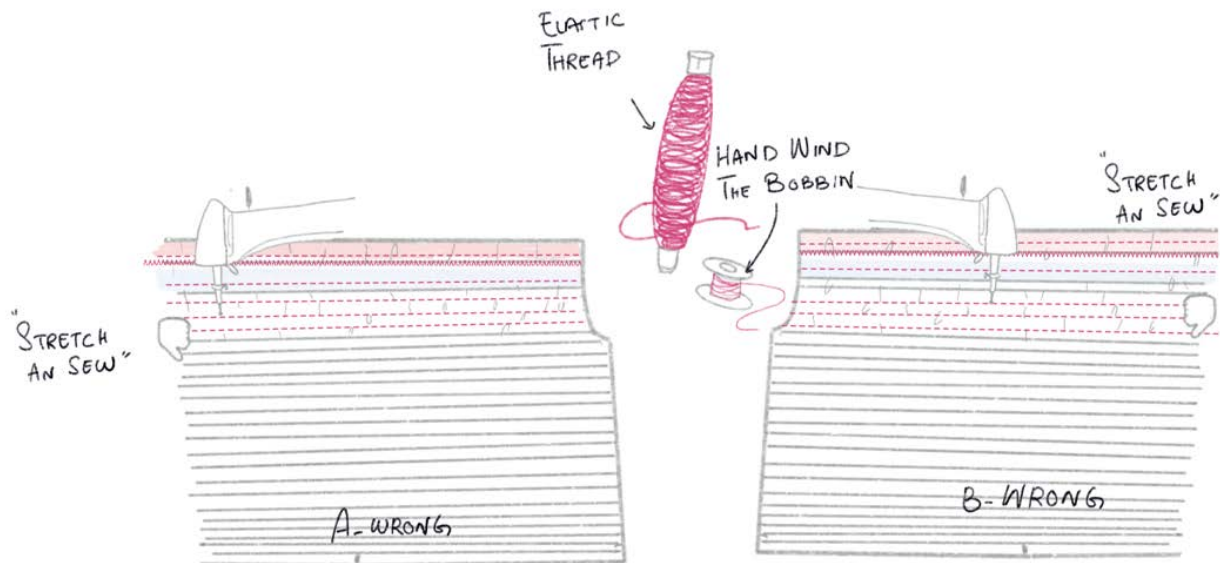 ELASTIC
THREAD
HAND WIND
THE BOBBIN
"STRETCH
AN SEW"
"STRETCH
AN SEW"
A-WRONG
B-WRONG